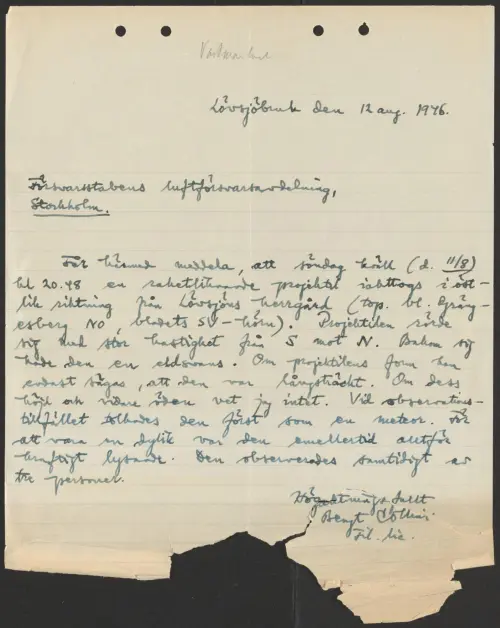 Lövsjöbruk den 12 aug. 1946.
Försvarsstabens luftförsvarsavdelning,
Stockholm.
Får härmed meddela, att söndag kväll (d. 11/8)
kl 20.48 en raketliknande projektil iakttogs i öst-
lik riktning från Lövsjöns herrgård (top. bl. Gräng-
esberg NO, bladets SV-hörn). Projektilen rörde
sig med stor hastighet från S mot N. Bakom sig
hade den en eldsvans. Om projektilens form kan
endast sägas, att den var långsträckt. Om dess
höjd och vidare öden vet jag intet. Vid observations-
tillfället tolkades den först som en meteor. För
att vara en dylik var den emellertid alltför
kraftigt lysande. Den observerades samtidigt av
tre personer.
Högaktningsfullt
Bengt
Fil. lic.